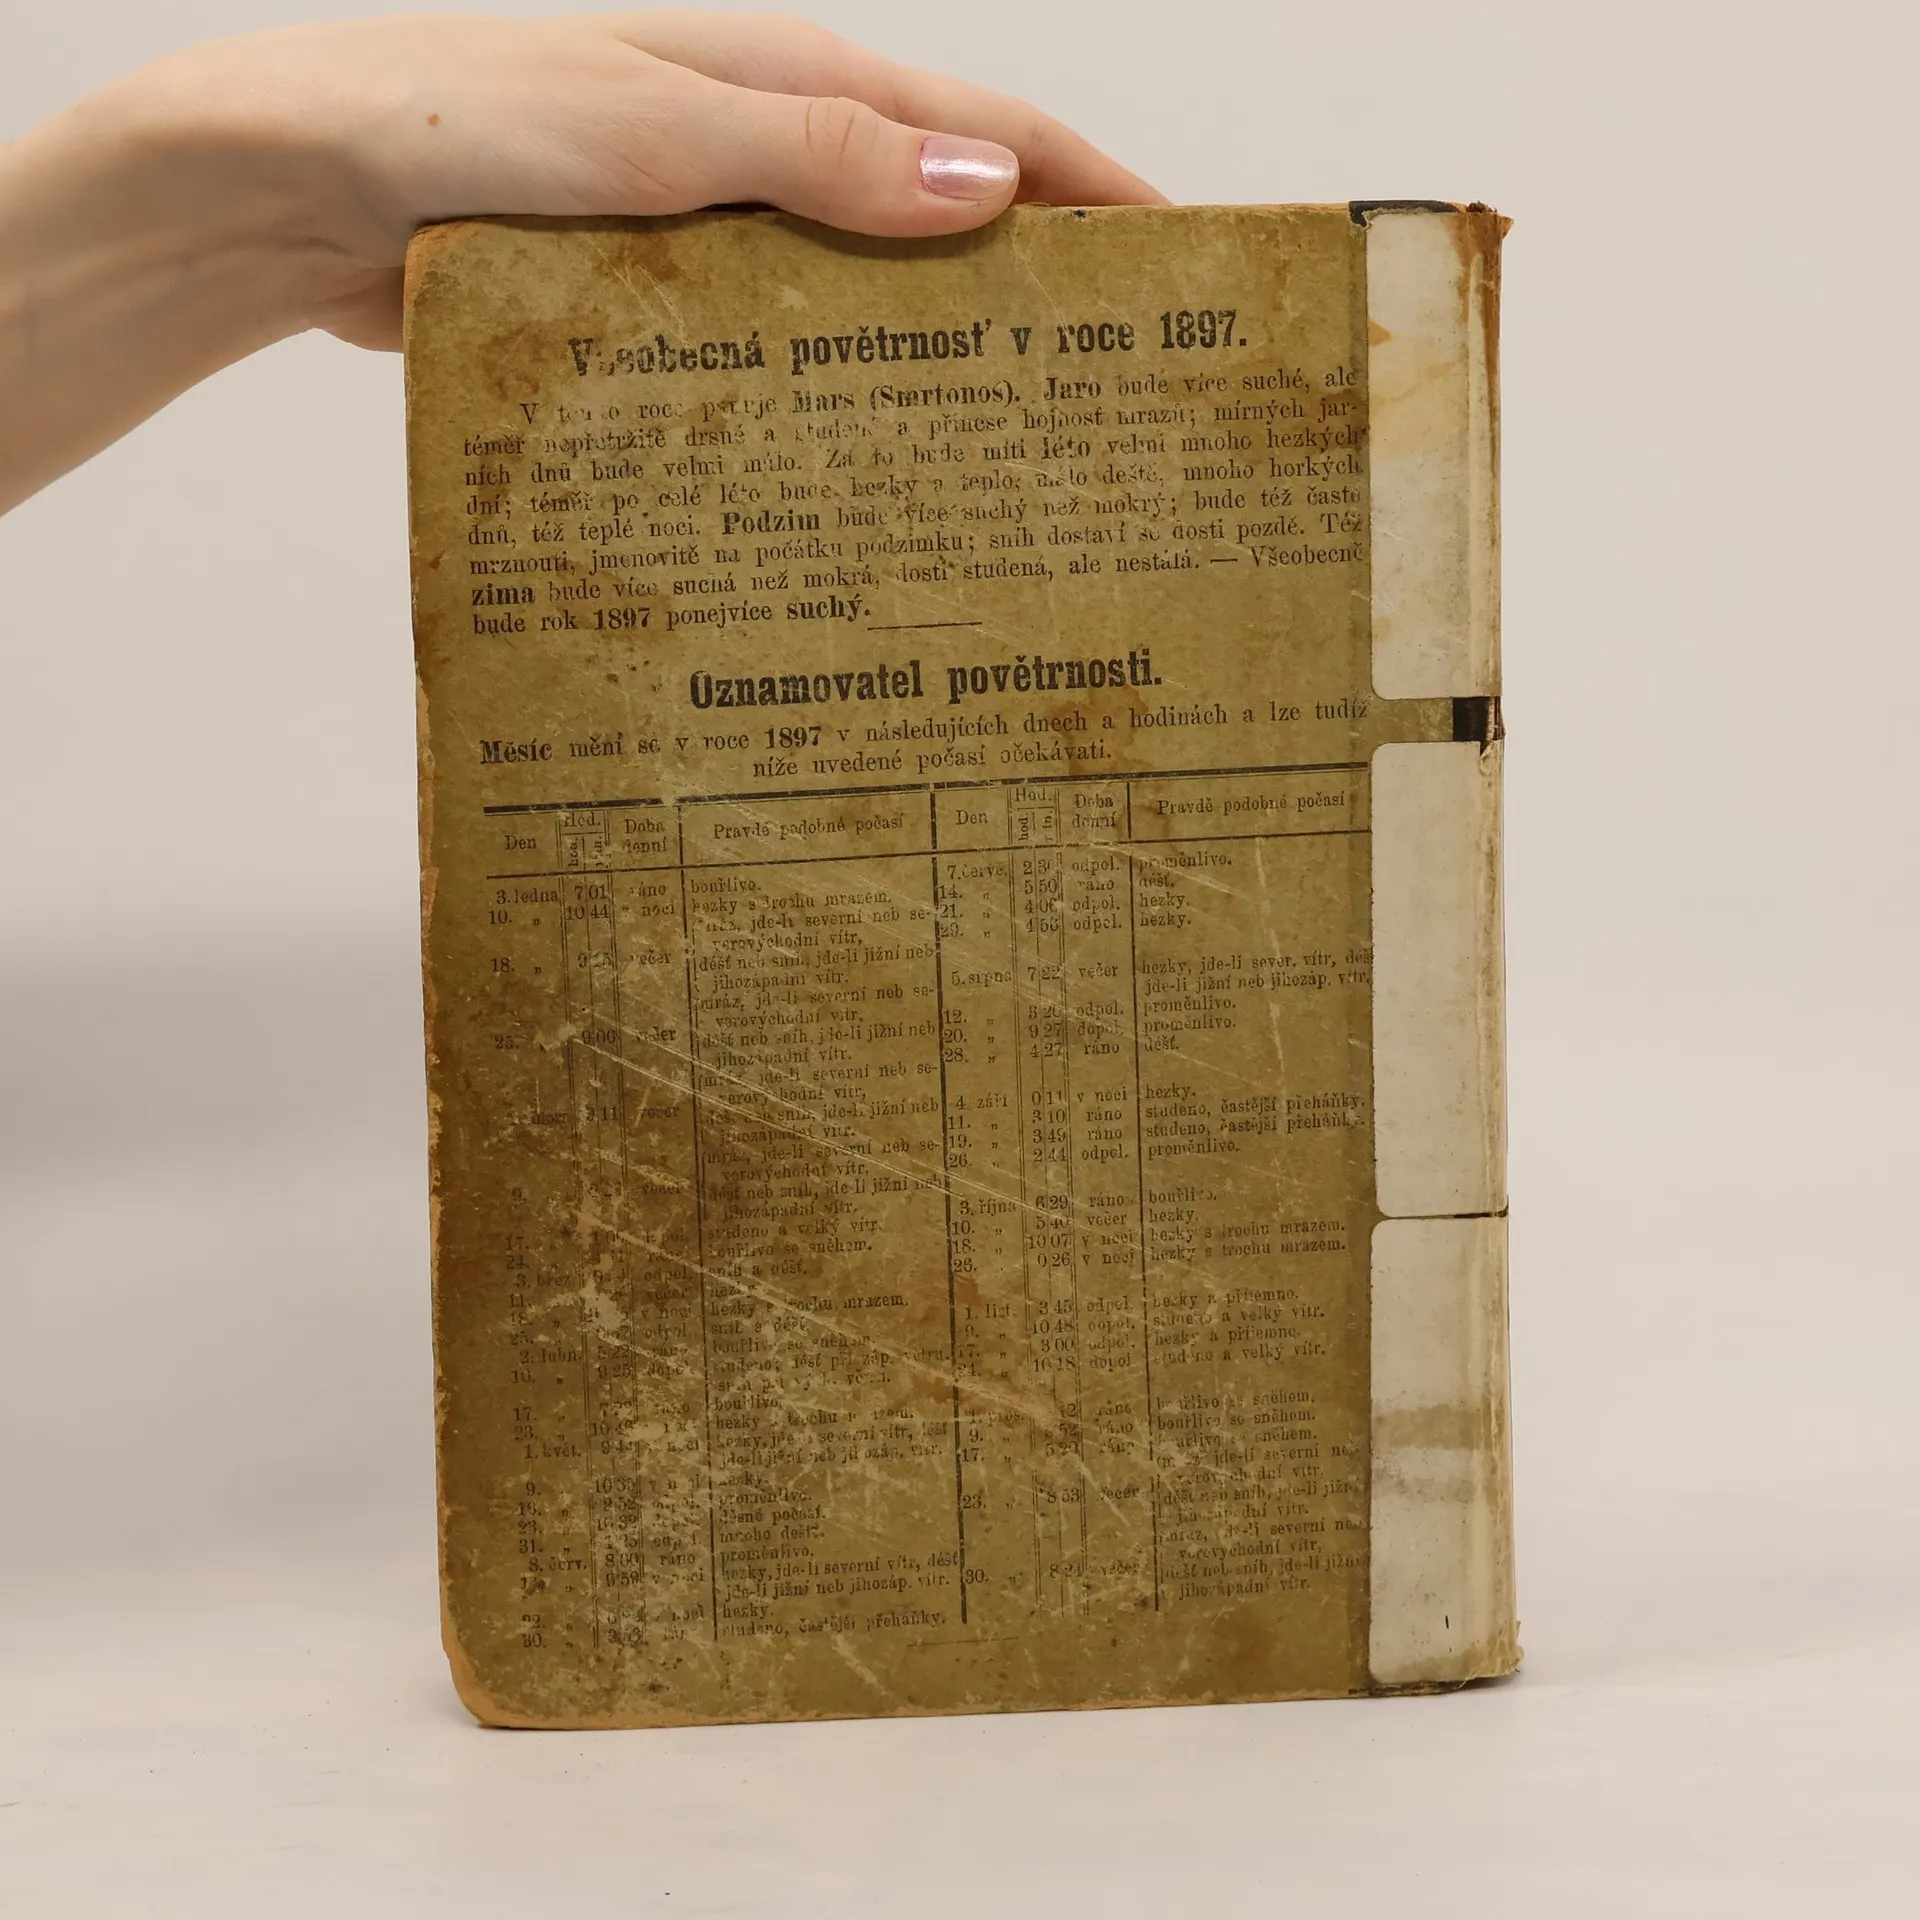 Všeobecná povětrnosť v roce 1897.
V tomto roce panuje Mars (Smrtonoš). Jaro bude více suché, ale
téměř nepřetržitě drsné a studené a přinese hojnost mrazů; mírných jar-
ních dnů bude velmi málo. Za to bude míti léto velmi mnoho hezkých
dní; téměř po celé léto bude hezky a teplo; málo deště, mnoho horkých
dnů, též teplé noci. Podzim bude více suchý než mokrý; bude též často
mrznouti, jmenovitě na počátku podzimku; sníh dostaví se dosti pozdě. Též
zima bude více suchá než mokrá, dosti studená, ale nestálá. — Všeobecně
bude rok 1897 ponejvíce suchý.
Oznamovatel povětrnosti.
Měsíc mění se v roce 1897 v následujících dnech a hodinách a lze tudíž
níže uvedené počasí očekávati.
Den Hod. Doba denní Pravdě podobné počasí
hod. min.
3. ledna 7 01 ráno bouřlivo.
10. „ 10 44 v noci hezky s trochu mrazem.
mráz, jde-li severní neb se-
verovýchodní vítr,
18. „ 9 večer déšť neb sníh, jde-li jižní neb
jihozápadní vítr.
mráz, jde-li severní neb se-
verovýchodní vítr,
25. „ 9 večer déšť neb sníh, jde-li jižní neb
jihozápadní vítr.
mráz, jde-li severní neb se-
verovýchodní vítr,
února 11 večer déšť neb sníh, jde-li jižní neb
jihozápadní vítr.
mráz, jde-li severní neb se-
verovýchodní vítr,
9. večer déšť neb sníh, jde-li jižní neb
jihozápadní vítr.
17. studeno a velký vítr.
24. bouřlivo se sněhem.
3. břez. odpol. sníh a déšť.
11. večer hezky
18. „ v noci hezky s trochu mrazem.
25. „ odpol. sníh a déšť.
2. dubn. bouřlivo se sněhem.
10. „ 9 25 dopol. studeno; déšť při záp. větru,
17. „ bouřlivo.
23. „ hezky s trochu mrazem.
1. květ. hezky, jde-li severní vítr, déšť
jde-li jižní neb jihozáp. vítr.
9. „ 10 35 v noci hezky.
16. „ proměnlivo.
23. „ děsné počasí.
31. „ odpol. mnoho deště.
8. červ. 8 00 ráno proměnlivo.
9 59 v noci hezky, jde-li severní vítr, déšť
jde-li jižní neb jihozáp. vítr.
22. „ hezky.
30. „ studeno, častější přeháňky.
Den Hod. Doba denní Pravdě podobné počasí
hod. min.
7. červe. 2 30 odpol. proměnlivo.
14. „ 5 50 ráno déšť.
21. „ 4 06 odpol. hezky.
29. „ 4 56 odpol. hezky.
5. srpna 7 22 večer hezky, jde-li sever. vítr,
jde-li jižní neb jihozáp. vítr.
12. „ 3 26 odpol. proměnlivo.
20. „ 9 27 dopol. proměnlivo.
28. „ 4 27 ráno déšť.
4. září 0 11 v noci hezky.
11. „ 3 10 ráno studeno, častější přeháňky.
19. „ 3 49 ráno studeno, častější přeháňky.
26. „ 2 44 odpol. proměnlivo.
3. října 6 29 ráno bouřlivo.
10. „ 5 40 večer hezky.
18. „ 10 07 v noci hezky s trochu mrazem.
0 26 v noci hezky s trochu mrazem.
1. list. 3 45 odpol. hezky a příjemno.
9. „ 10 48 dopol. studeno a velký vítr.
17. „ 3 00 odpol. hezky a příjemno.
10 18 dopol studeno a velký vítr.
pros. ráno bouřlivo se sněhem.
9. „ 52 ráno bouřlivo se sněhem.
17. „ 5 20 ráno bouřlivo se sněhem.
mráz, jde-li severní neb
verovýchodní vítr,
23. „ 8 53 večer déšť neb sníh, jde-li jižní
jihozápadní vítr.
mráz, jde-li severní neb
verovýchodní vítr,
30. „ večer déšť neb sníh, jde-li jižní
jihozápadní vítr.